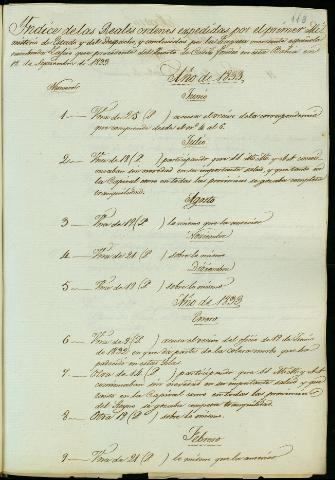 118
Indice de las Reales ordenes expedidas por el primer Mi-
nisterio de Estado y del Despacho, y conducidas por la
procedente del Puerto de en esta Bahia en
12 de Septiembre de 1833
Año de 1832
Numero
Junio
1 — Una de 25 (P.) acusa el recibo de la correspondencia
que comprende desde el nº 4 al 6.
Julio
2 — Una de 18 (P.) participando que SS. MM. y AA. conti-
nuaban sin novedad en su importante salud, y que tanto en
la Capital como en todas las provincias se gozaba completa
tranquilidad.
Agosto
3 — Una de 19 (P.) lo mismo que la anterior
Noviembre
4 — Una de 21 (P.) sobre lo mismo
Diciembre
5 — Una de 18 (P.) sobre lo mismo
Año de 1833
Enero
6 — Una de 8 (P.) acusa el recibo del oficio de 12 de Junio
de 1832 en que da parte de la que ha
padecido en estas Islas
7 — Otra de 14 (P.) participando que SS. MM. y AA.
continuaban sin novedad en su importante salud y que
tanto en la Capital como en todas las provincias
del Reyno se gozaba completa tranquilidad.
8 — Otra 18 (P.) sobre lo mismo.
Febrero
9 — Una de 21 (P.) lo mismo que la anterior